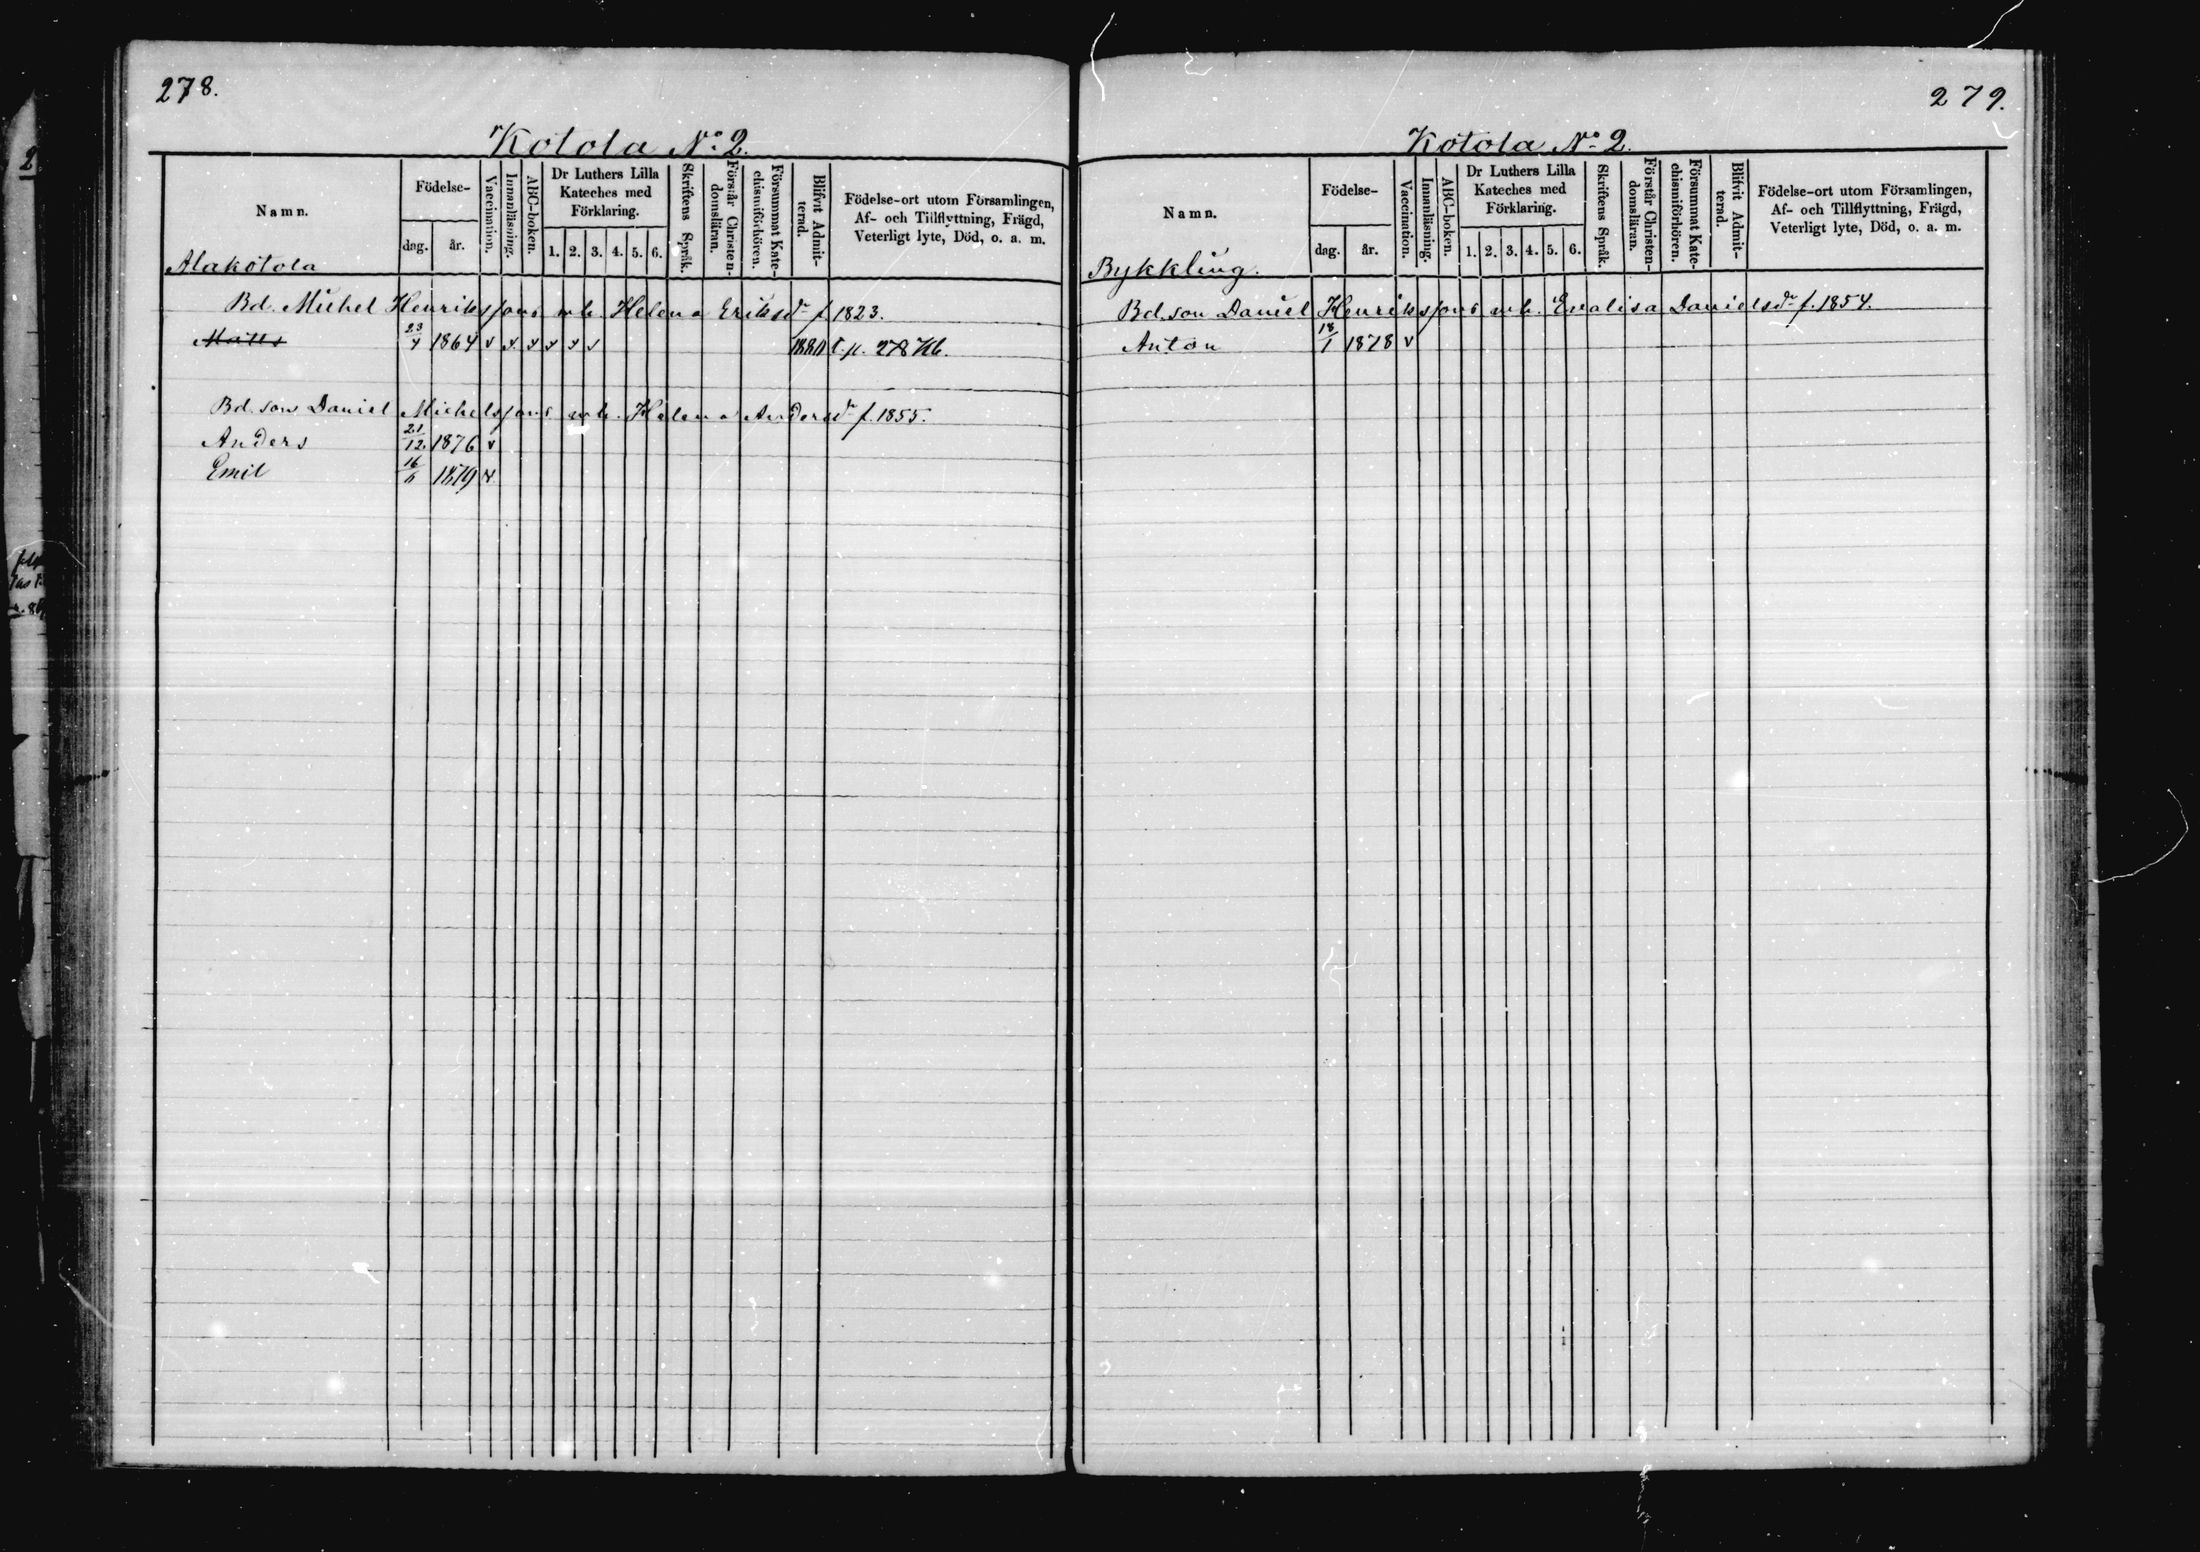 278.
Kotola No 2.
Namn.
Födelse-
dag. år.
Vaccination.
Innanläsning.
ABC-boken.
Dr Luthers Lilla
Kateches med
Förklaring.
1. 2. 3. 4. 5. 6.
Skriftens Språk.
Förstår Christen-
domsläran.
Försummat Kate-
chismiförhören.
Blifvit Admit-
terad.
Födelse-ort utom Församlingen,
Af- och Tillflyttning, Frägd,
Veterligt lyte, Död, o. a. m.
Alakotola
Bd. Michel Henriksons u. h. Helena Eriksdr f. 1823.
Matts 23/4 1864 v v v v v v 1880 t. p. 278 Kb.
Bd. sons Daniel Michelsons u. h. Helena Andersdr f. 1855.
Anders 21/12. 1876 v
Emil 16/6 1879 v
279.
Kotola No 2.
Namn.
Födelse-
dag. år.
Vaccination.
Innanläsning.
ABC-boken.
Dr Luthers Lilla
Kateches med
Förklaring.
1. 2. 3. 4. 5. 6.
Skriftens Språk.
Förstår Christen-
domsläran.
Försummat Kate-
chismiförhören.
Blifvit Admit-
terad.
Födelse-ort utom Församlingen,
Af- och Tillflyttning, Frägd,
Veterligt lyte, Död, o. a. m.
Bykkling.
Bd. son Daniel Henriksons u. h. Enalisa Danielsdr f. 1854.
Anton 18/1 1878 v